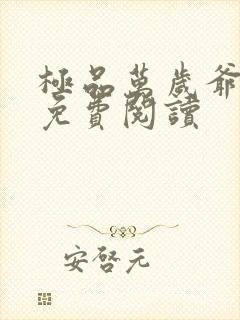 極品萬歲爺
免費閱讀
安啓元